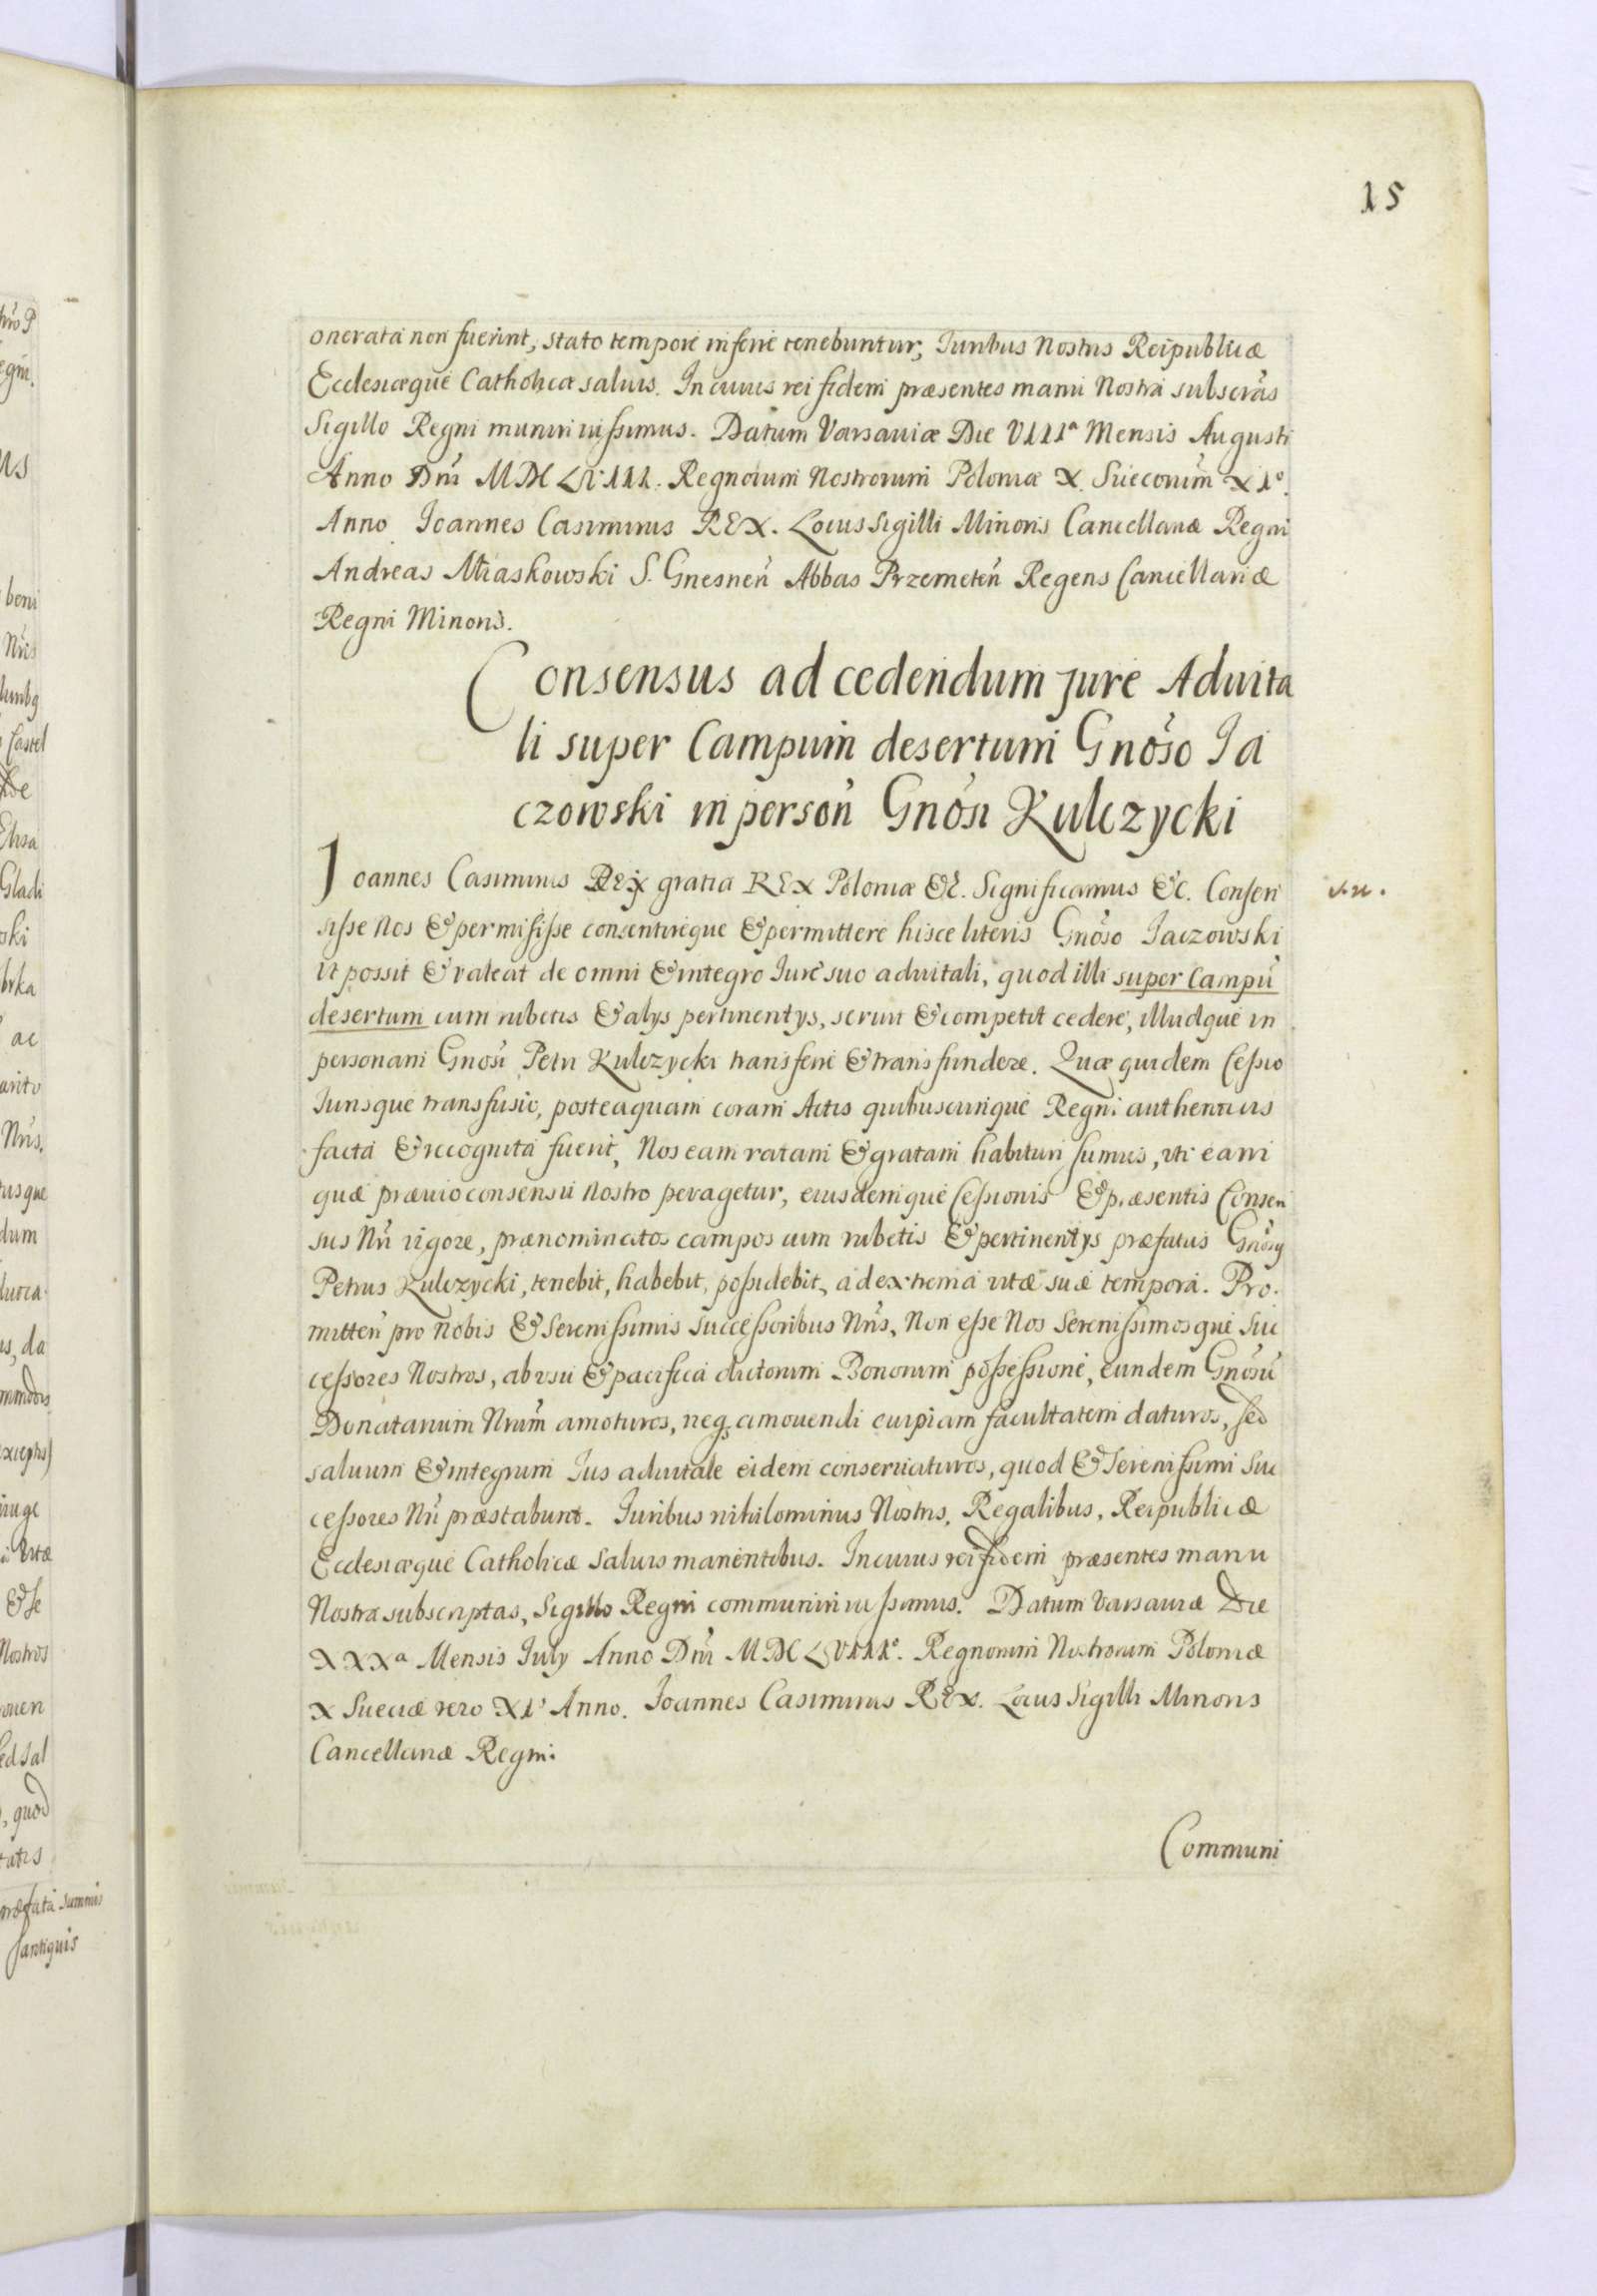 15
onerata non fuerint, stato tempore inferre tenebuntur, Iuribus Nostris Reipublicæ
Ecclesiæque Catholicæ saluis. In cuius rei fidem præsentes manu Nostra subscrãs
Sigillo Regni muniri iussimus. Datum Varsauiæ Die VIIIª Mensis Augusti
Anno Dnĩ MDCLVIII. Regnorum Nostrorum Poloniæ X. Sueconĩm XIº.
Anno. Joannes Casimirus REX. Locus Sigilli Minoris Cancellariæ Regni
Andreas Miaskowski S. Gnesneñ Abbas Przemeteñ Regens Cancellariæ
Regni Minoris.
Consensus ad cedendum jure Aduita
li super Campum desertum Gnõso Ja
czowski in persoñ Gnõsi Kulczycki
Joannes Casimirus Dei gratia REX Poloniæ &c. Significamus &c. Consen
sisse Nos & permisisse consentireque & permittere hisce literis Gnõso Jaczowski
vt possit & valeat de omni & integro Iure suo aduitali, quod illi super Campũ
desertum cum rubetis & alys pertinentys, seruit & competit cedere, illudque in
personam Gnosi Petri Kulczycki transferre & transfundere. Quæ quidem Cessio
Iurisque transfusio, posteaquam coram Actis quibuscunque Regni authenticis
facta & recognita fuerit, Nos eam ratam & gratam habituri sumus, vti eam
quæ præuio consensu Nostro peragetur, eiusdemque Cessionis & præsentis Consen
sus Nrĩ vigore, prænominatos campos cum rubetis & pertinentys præfatus Gnõsy
Petrus Kulczycki, tenebit, habebit, possidebit, ad extrema vitæ suæ tempora. Pro.
mitteñ pro Nobis & Serenissimis Successoribus Nrĩs, Non esse Nos Serenissimosque Suc
cessores Nostros, ab vsu & pacifica dictorum Bonorum possessione, eundem Gnõsũ
Donatarium Nrũm amoturos, neq, amouendi cuipiam facultatem daturos, sed
saluum & integrum Ius aduitale eidem conseruaturos, quod & Serenissimi Suc
cessores Nrĩ præstabunt. Iuribus nihilominus Nostris, Regalibus, Reipublicæ
Ecclesiæque Catholicæ saluis manentibus. In cuius rei fidem præsentes manu
Nostra subscriptas, Sigillo Regni communiri iussimus. Datum Varsauiæ Die
XXXª Mensis July Anno Dnĩ MDCLVIIIº. Regnorum Nostrorum Poloniæ
X Sueciæ vero XIº Anno. Joannes Casimirus REX. Locus Sigilli Minoris
Cancellariæ Regni.
Communi